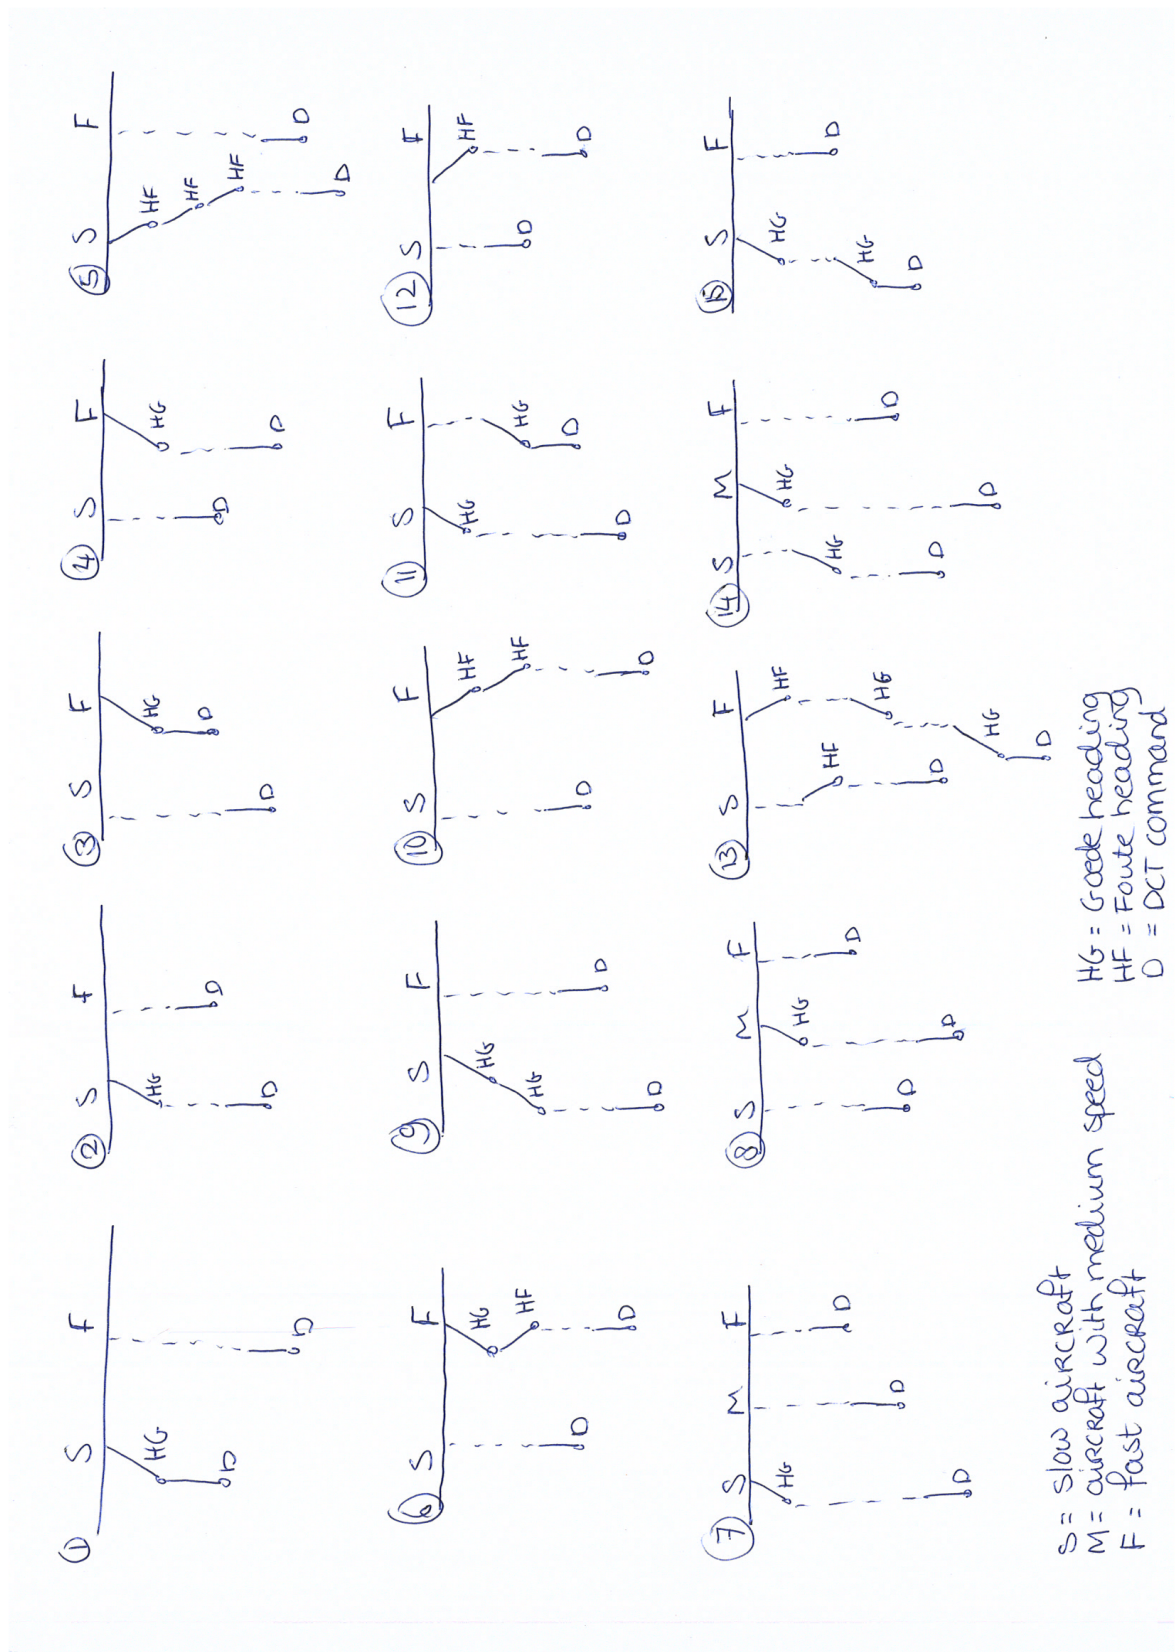 ① S F
HG
D
D
② S F
HG
D
D
③ S F
HG
D
D
④ S F
HG
D
D
⑤ S F
HF
HF
HF
D
D
⑥ S F
HG
HF
D
D
⑨ S F
HG
HG
D
D
⑩ S F
HF
HF
D
D
⑪ S F
HG
HG
D
D
⑫ S F
HF
D
D
⑦ S M F
HG
D
D
D
⑧ S M F
HG
D
D
D
⑬ S F
HF
HF
HG
D
HG
D
⑭ S M F
HG
HG
D
D
D
⑮ S F
HG
D
HG
D
S = Slow aircraft
M = aircraft with medium speed
F = fast aircraft
HG = Goede heading
HF = Foute heading
D = DCT command